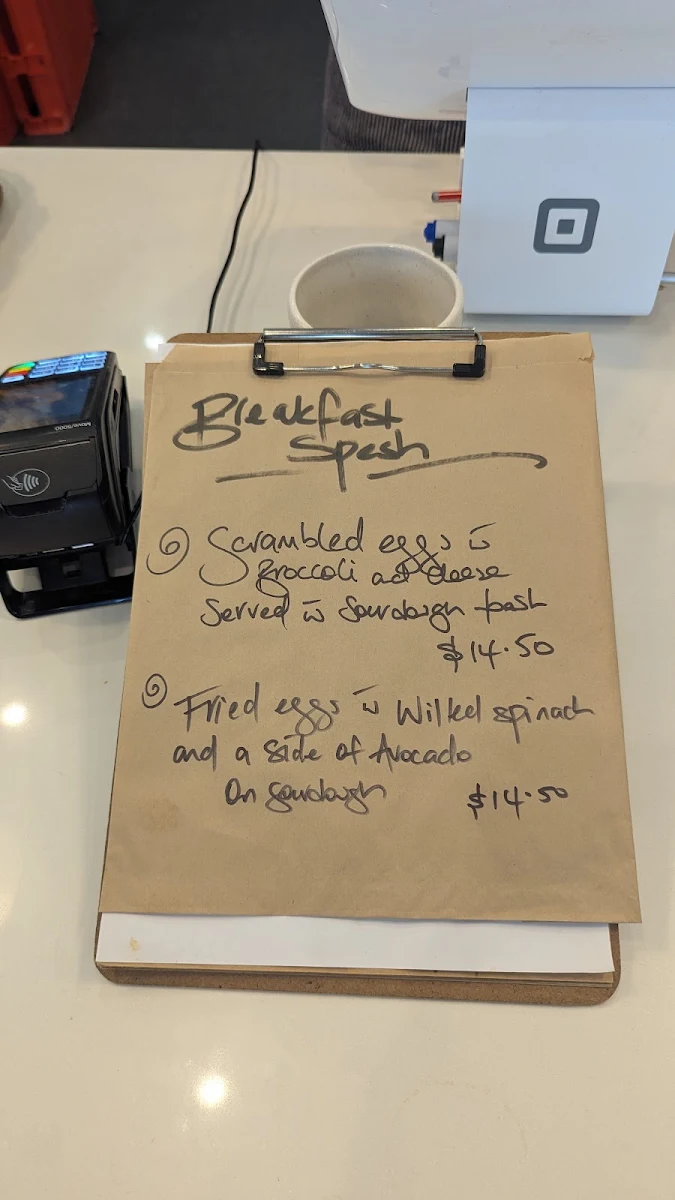 Breakfast
Spesh
Scrambled eggs w
Broccoli ad cheese
Served w Sourdough toast
$14.50
Fried eggs w Wilted spinach
and a side of Avocado
On sourdough $14.50
Move/5000